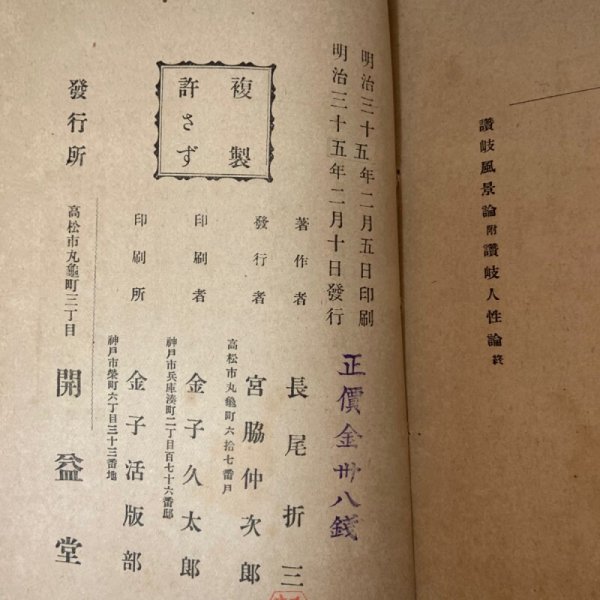 讃岐風景論附讃岐人性論終
明治三十五年二月五日印刷
明治三十五年二月十日發行
正價金卅八錢
複製
許さず
著作者 長尾折三
高松市丸龜町六拾七番戸
發行者 宮脇仲次郎
神戸市兵庫湊町二丁目百七十六番邸
印刷者 金子久太郎
神戸市榮町六丁目三十三番地
印刷所 金子活版部
高松市丸龜町三丁目
發行所 開益堂